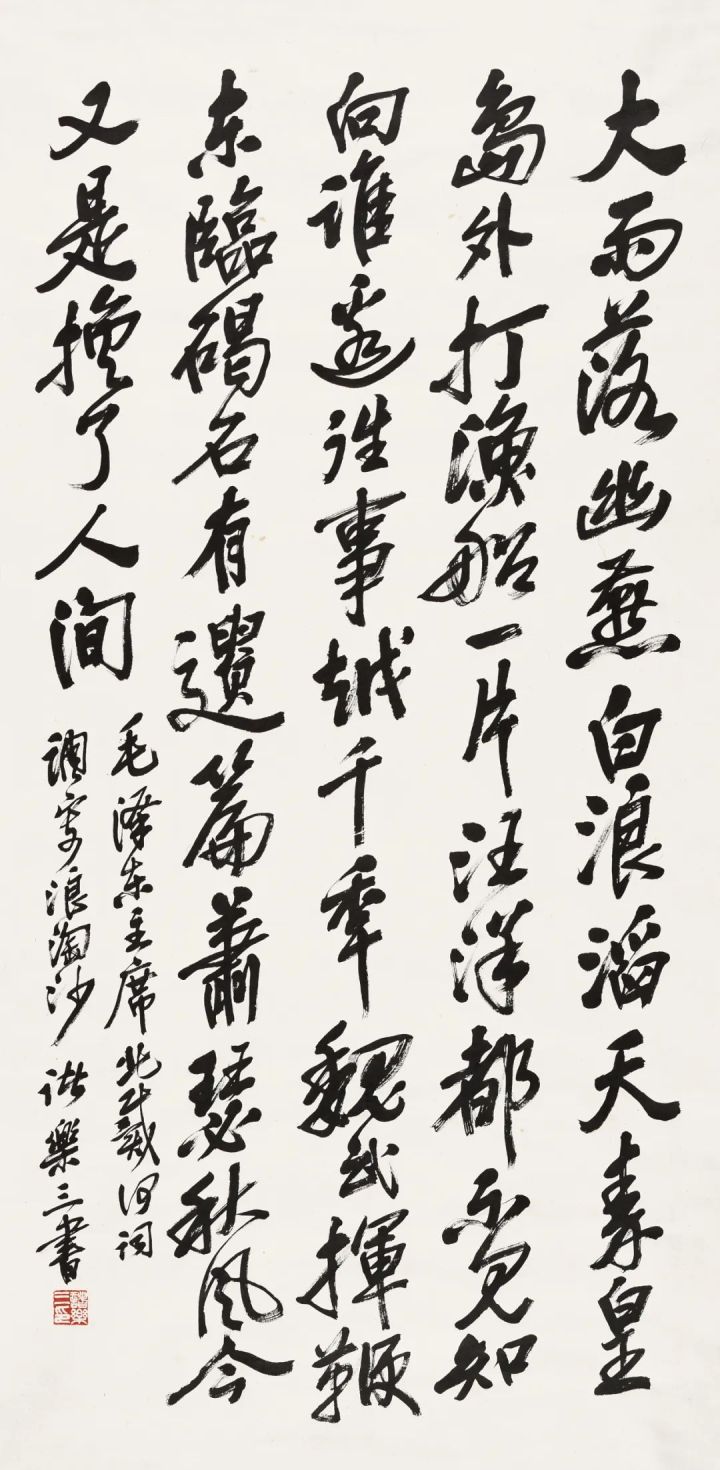 大雨落幽燕白浪滔天秦皇
島外打漁船一片汪洋都不見知
向誰邊往事越千年魏武揮鞭
东臨碣石有遺篇蕭瑟秋風今
又是換了人間
毛澤东主席北戴河詞
調寄浪淘沙 諸樂三書
諸樂三印